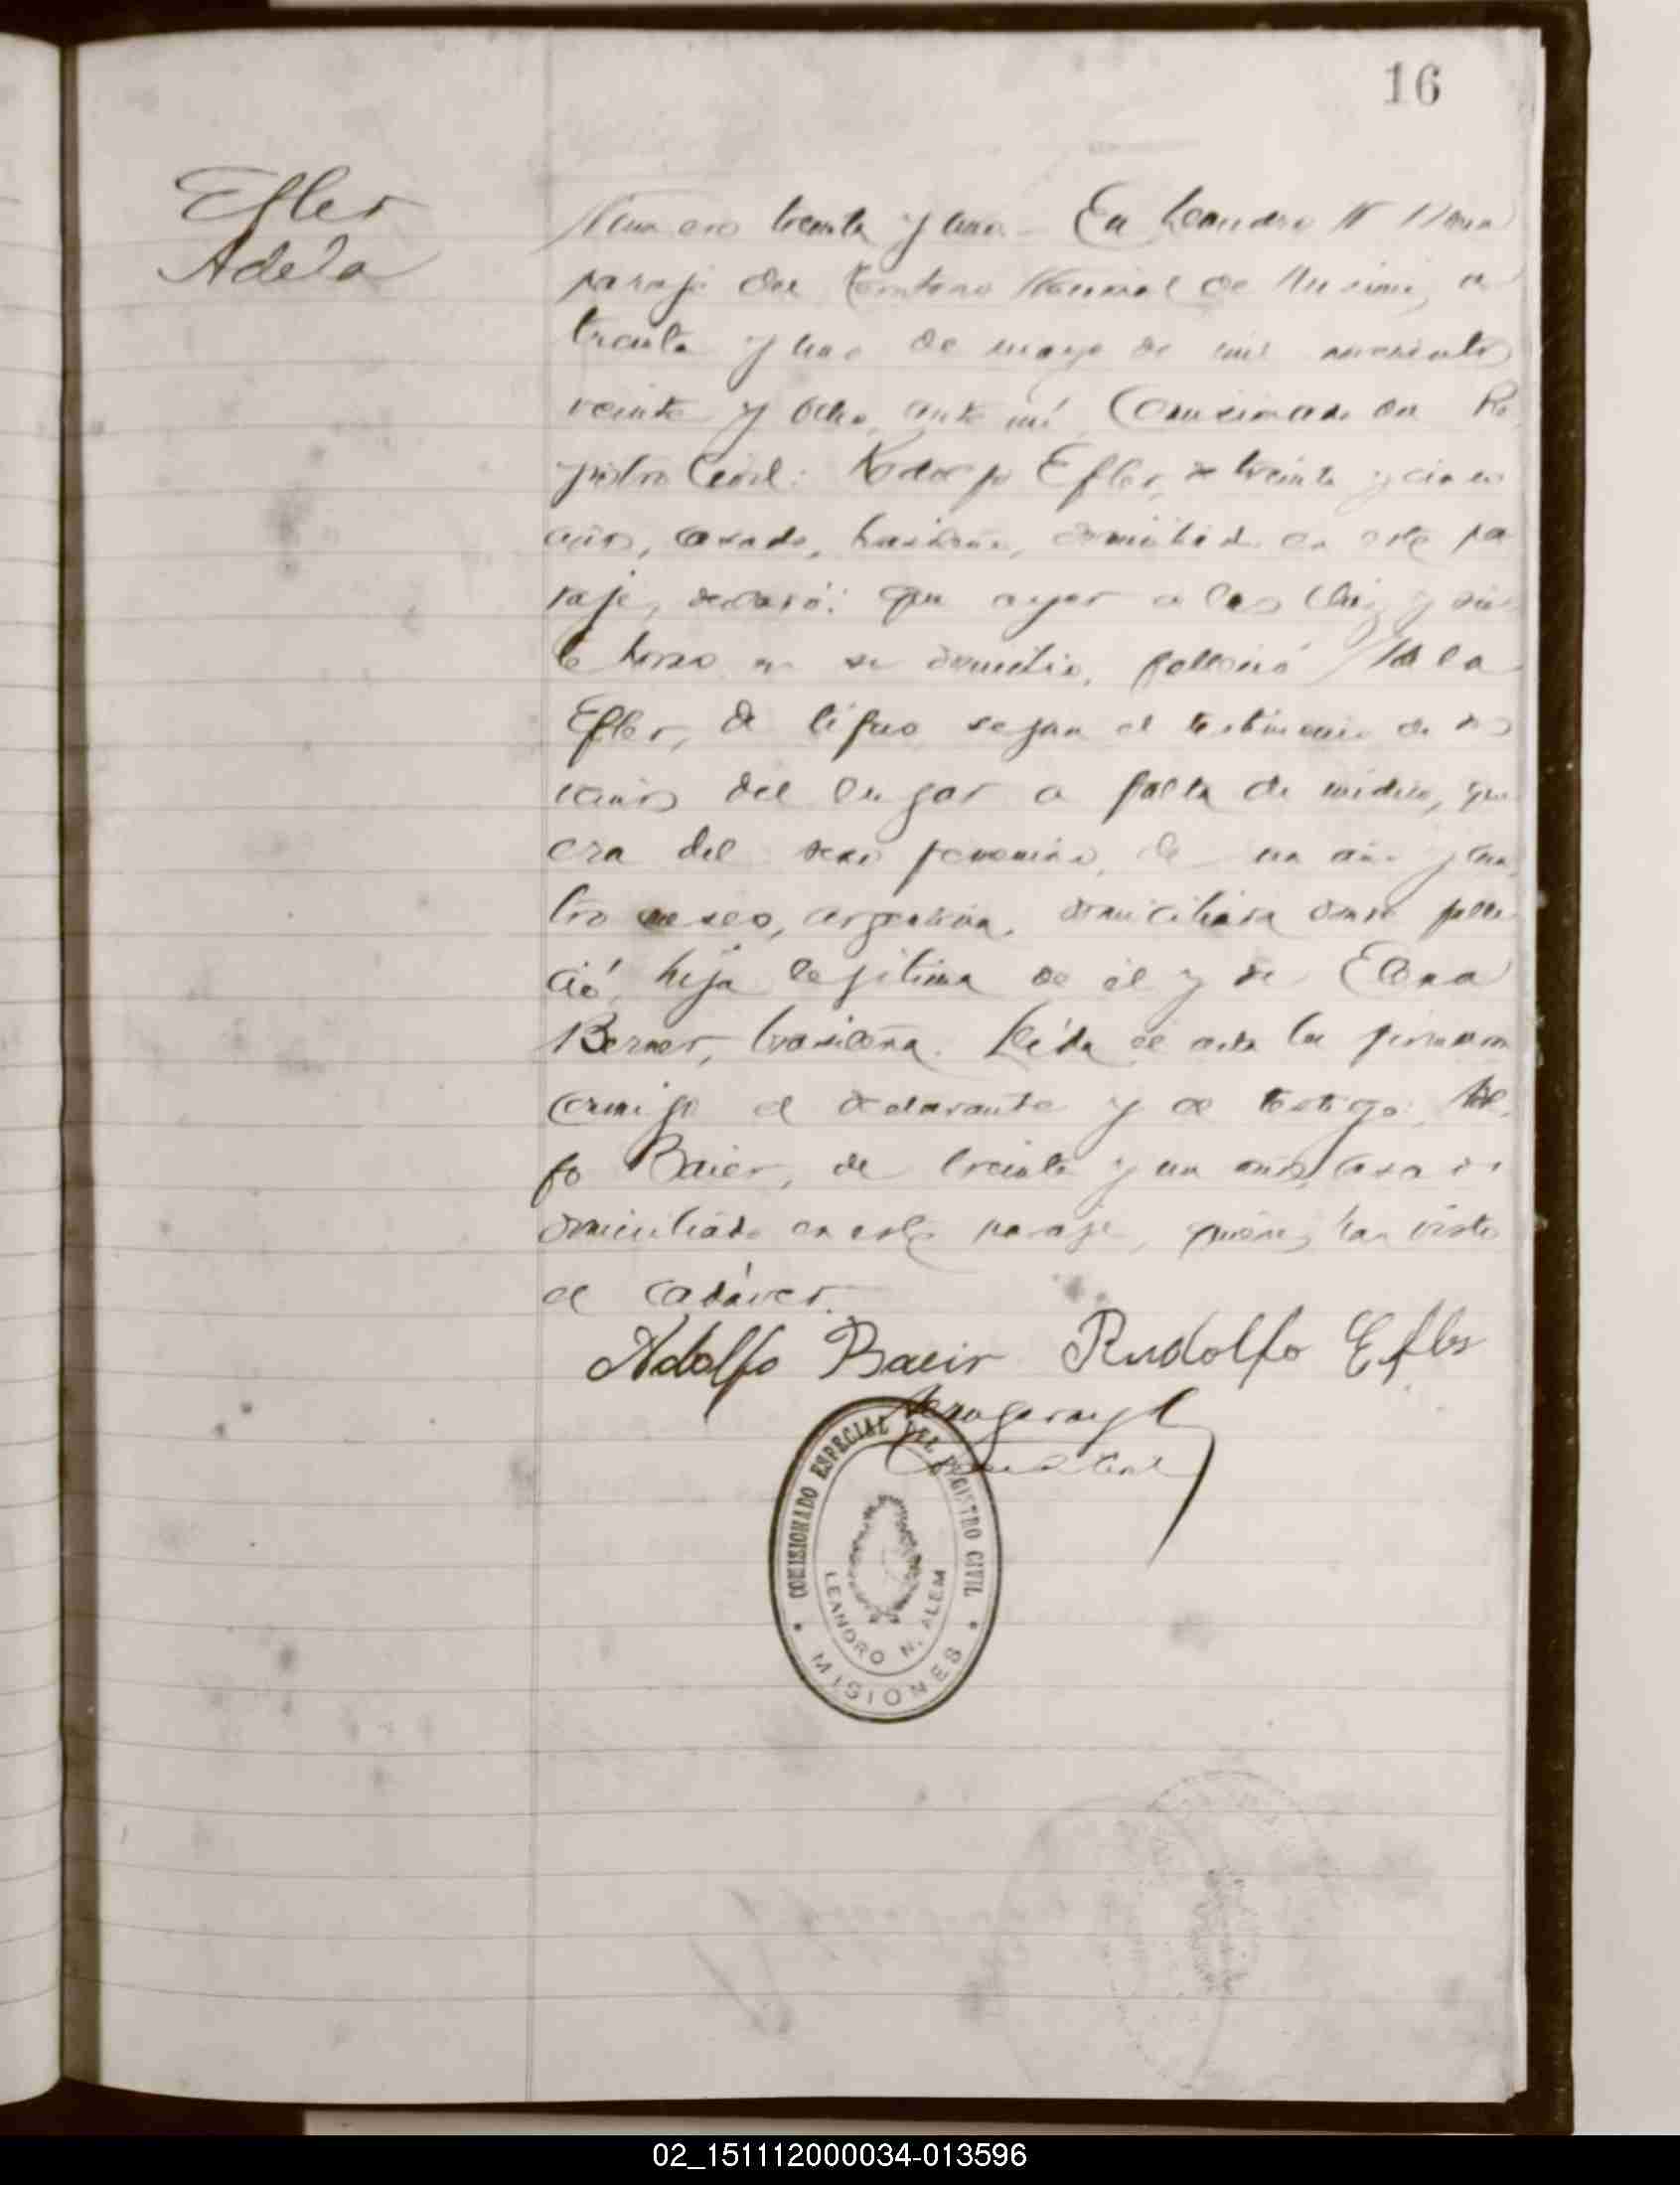 16
Efler
Adela
Numero treinta y uno - En Leandro N Alem
paraje del Territorio Nacional de Misiones, a
treinta y uno de mayo de mil novecientos
veinte y ocho, ante mí, Comisionado del Re
gistro Civil: Rodolfo Efler, de treinta y cinco
años, casado, brasileño, domiciliado en este pa
raje, declaró: que ayer a las diez y sie
te horas en su domicilio, falleció Adela
Efler, de tifus según el testimonio de ve
cinos del lugar a falta de médico, que
era del sexo femenino, de un año y cua
tro meses, argentina, domiciliada donde falle
ció, hija legítima de él y de Elena
Berner, brasileña. Leída el acta la firmaron
conmigo el declarante y el testigo: Adol
fo Baier, de treinta y un años, casado
domiciliado en este paraje, quienes han visto
el cadáver.
Adolfo Baeir Rudolfo Efler
COMISIONADO ESPECIAL DEL REGISTRO CIVIL
LEANDRO N. ALEM
MISIONES
02_151112000034-013596